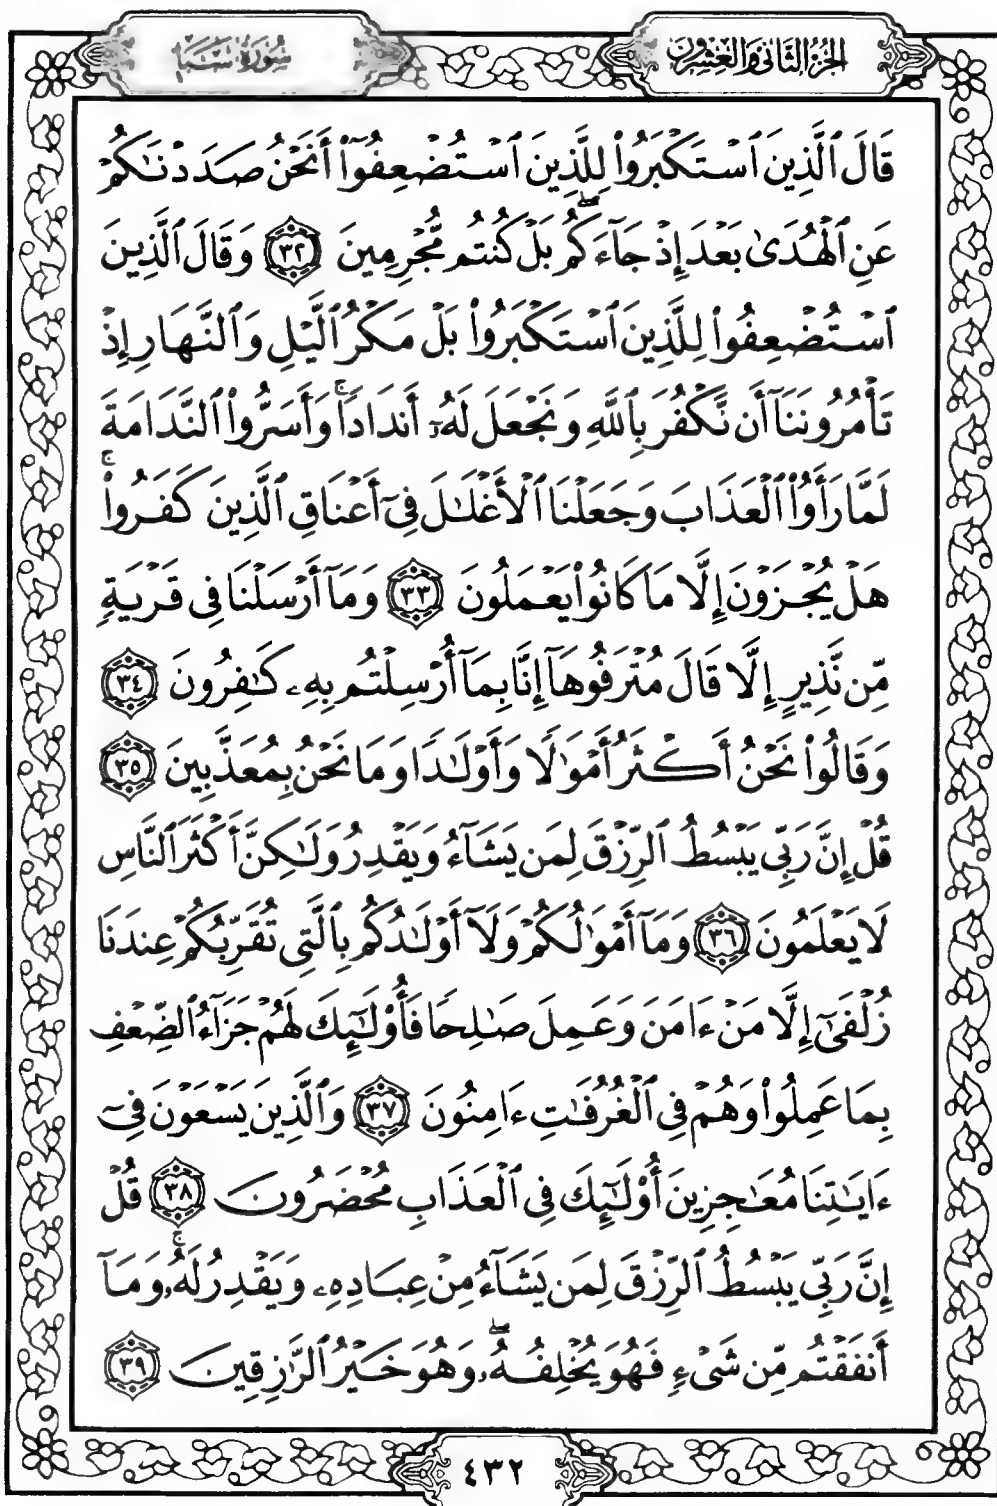 الجزء الثاني والعشرون
سورة سبأ
قَالَ ٱلَّذِينَ ٱسۡتَكۡبَرُواْ لِلَّذِينَ ٱسۡتُضۡعِفُوٓاْ أَنَحۡنُ صَدَدۡنَٰكُمۡ
عَنِ ٱلۡهُدَىٰ بَعۡدَ إِذۡ جَآءَكُمۖ بَلۡ كُنتُم مُّجۡرِمِينَ ٣٢ وَقَالَ ٱلَّذِينَ
ٱسۡتُضۡعِفُواْ لِلَّذِينَ ٱسۡتَكۡبَرُواْ بَلۡ مَكۡرُ ٱلَّيۡلِ وَٱلنَّهَارِ إِذۡ
تَأۡمُرُونَنَآ أَن نَّكۡفُرَ بِٱللَّهِ وَنَجۡعَلَ لَهُۥٓ أَندَادٗاۚ وَأَسَرُّواْ ٱلنَّدَامَةَ
لَمَّا رَأَوُاْ ٱلۡعَذَابَ وَجَعَلۡنَا ٱلۡأَغۡلَٰلَ فِيٓ أَعۡنَاقِ ٱلَّذِينَ كَفَرُواْۚ
هَلۡ يُجۡزَوۡنَ إِلَّا مَا كَانُواْ يَعۡمَلُونَ ٣٣ وَمَآ أَرۡسَلۡنَا فِي قَرۡيَةٖ
مِّن نَّذِيرٍ إِلَّا قَالَ مُتۡرَفُوهَآ إِنَّا بِمَآ أُرۡسِلۡتُم بِهِۦ كَٰفِرُونَ ٣٤
وَقَالُواْ نَحۡنُ أَكۡثَرُ أَمۡوَٰلٗا وَأَوۡلَٰدٗا وَمَا نَحۡنُ بِمُعَذَّبِينَ ٣٥
قُلۡ إِنَّ رَبِّي يَبۡسُطُ ٱلرِّزۡقَ لِمَن يَشَآءُ وَيَقۡدِرُ وَلَٰكِنَّ أَكۡثَرَ ٱلنَّاسِ
لَا يَعۡلَمُونَ ٣٦ وَمَآ أَمۡوَٰلُكُمۡ وَلَآ أَوۡلَٰدُكُم بِٱلَّتِي تُقَرِّبُكُمۡ عِندَنَا
زُلۡفَىٰٓ إِلَّا مَنۡ ءَامَنَ وَعَمِلَ صَٰلِحٗا فَأُوْلَٰٓئِكَ لَهُمۡ جَزَآءُ ٱلضِّعۡفِ
بِمَا عَمِلُواْ وَهُمۡ فِي ٱلۡغُرُفَٰتِ ءَامِنُونَ ٣٧ وَٱلَّذِينَ يَسۡعَوۡنَ فِيٓ
ءَايَٰتِنَا مُعَٰجِزِينَ أُوْلَٰٓئِكَ فِي ٱلۡعَذَابِ مُحۡضَرُونَ ٣٨ قُلۡ
إِنَّ رَبِّي يَبۡسُطُ ٱلرِّزۡقَ لِمَن يَشَآءُ مِنۡ عِبَادِهِۦ وَيَقۡدِرُ لَهُۥۚ وَمَآ
أَنفَقۡتُم مِّن شَيۡءٖ فَهُوَ يُخۡلِفُهُۥۖ وَهُوَ خَيۡرُ ٱلرَّٰزِقِينَ ٣٩
٤٣٢